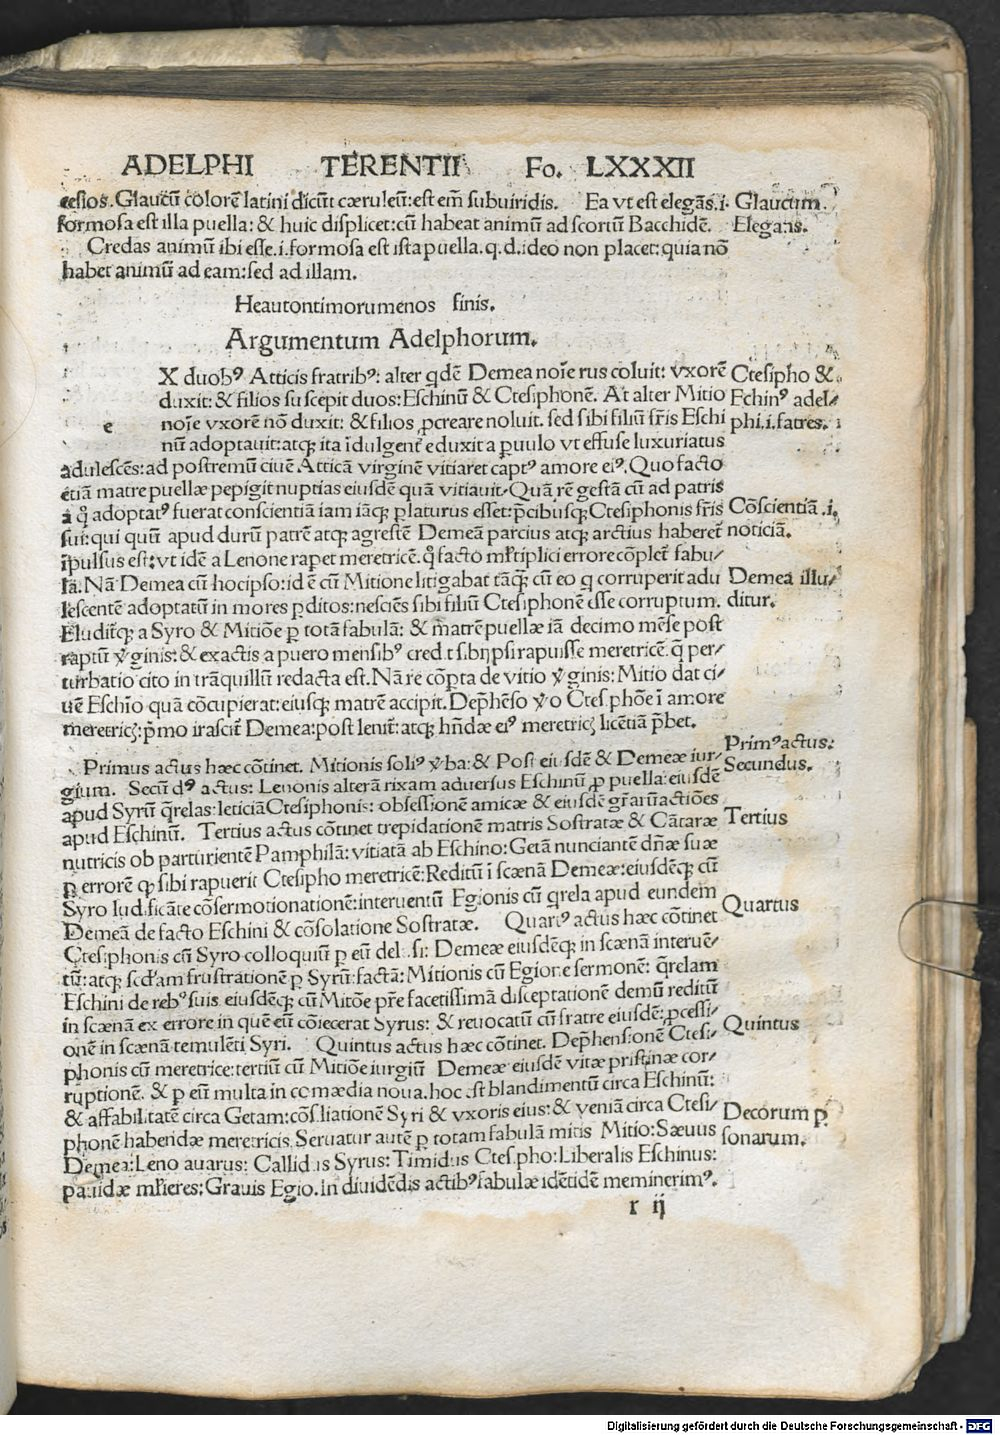 ADELPHI TERENTII Fo. LXXXII
cesios. Glaucū colorē latini dicūt cæruleū: est em̄ subuiridis. Ea vt est elegās. i. Glaucum.
formosa est illa puella: & huic displicet: cū habeat animū ad scortū Bacchidē. Elegans.
Credas animū ibi esse. i. formosa est ista puella. q. d. ideo non placet: quia nō
habet animū ad eam: sed ad illam.
Heautontimorumenos finis.
Argumentum Adelphorum.
e
X duobꝰ Atticis fratribꝰ: alter qdē Demea noīe rus coluit: vxorē
duxit: & filios suscepit duos: Eschinū & Ctesiphonē. At alter Mitio
noīe vxorē nō duxit: & filios ꝓcreare noluit. sed sibi filiū fr̄is Eschi
nū adoptauit: atqꝫ ita īdulgent̄ eduxit a puulo vt effuse luxuriatus
adulescēs: ad postremū ciuē Atticā virginē vitiaret captꝰ amore eiꝰ. Quo facto
etiā matre puellæ pepigit nuptias eiusdē quā vitiauit. Quā rē gestā cū ad patris
a q̄ adoptatꝰ fuerat conscientiā iam iāqꝫ ꝑlaturus esset: p̄cibusqꝫ Ctesiphonis fr̄is
sui: qui quū apud durū patrē atqꝫ agrestē Demeā parcius atqꝫ arctius haberet̄
īpulsus est: vt idē a Lenone rapet meretricē. q̄ facto ml̄tiplici errore cōplet̄ fabu/
la. Nā Demea cū hoc ipso: id ē cū Mitione litigabat tāqꝫ cū eo q corruperit adu
lescentē adoptatū in mores ꝑditos: nesciēs sibi filiū Ctesiphonē esse corruptum.
Eludit̄qꝫ a Syro & Mitiōe ꝑ totā fabulā: & matrē puellæ iā decimo mēse post
raptū v̄ginis: & exactis a puero mensibꝰ
turbatio cito in trāquillū redacta est. Nā re cōpta de vitio v̄ginis: Mitio dat ci/
uē Eschīo quā cōcupierat: eiusqꝫ matrē accipit. Dep̄hēso v̄o Ctesiphōe ī amore
meretricꝭ: p̄mo irascit̄ Demea: post lenit̄: atqꝫ hn̄dæ eiꝰ meretricꝭ licētiā p̄bet.
Ctesipho &
Echinꝰ adel/
phi. i. fatres.
Cōscientiā. i.
noticiā.
Demea illu/
ditur.
Primus actus hæc cōtinet. Mitionis soliꝰ v̄ba: & Post eiusdē & Demeæ iur/
gium. Secūdꝰ actus: Lenonis alterā rixam aduersus Eschinū ꝓ puella: eiusdē
apud Syrū q̄relas: leticiā Ctesiphonis: obsessionē amicæ & eiusdē gr̄arū actiōes
apud Eschinū. Tertius actus cōtinet trepidationē matris Sostratæ & Cātaræ
nutricis ob parturientē Pamphilā: vitiatā ab Eschino: Getā nunciantē dn̄æ suæ
ꝑ errorē qꝫ sibi rapuerit Ctesipho meretricē: Reditū ī scænā Demeæ: eiusdēqꝫ cū
Syro ludificāte cōsermotionationē: interuentū Egionis cū q̄rela apud eundem
Demeā de facto Eschini & cōsolatione Sostratæ. Quartꝰ actus hæc cōtinet
Ctesiphonis cū Syro colloquiū ꝑ eū delusi: Demeæ eiusdēqꝫ in scænā interuē/
tū: atqꝫ scd̄am frustrationē ꝑ Syrū: factā: Mitionis cū Egione sermonē: q̄relam
Eschini de rebꝰ suis eiusdēqꝫ cū Mitōe pr̄e facetissimā disceptationē demū reditū
in scænā ex errore in quē eū cōiecerat Syrus: & reuocatū cū fratre eiusdē: ꝓcessi/
onē in scænā temulēti Syri. Quintus actus hæc cōtinet. Dep̄hensionē Ctesi/
phonis cū meretrice: tertiū cū Mitiōe iurgiū Demeæ eiusdē vitæ pristinæ cor/
ruptionē. & ꝑ eū multa in comædia noua. hoc est blandimentū circa Eschinū:
& affabilitatē circa Getam: cōsiliationē Syri & vxoris eius: & veniā circa Ctesi/
phonē habendæ meretricis. Seruatur autē ꝑ totam fabulā mitis Mitio: Sæuus
Demea: Leno auarus: Callidus Syrus: Timidus Ctesipho: Liberalis Eschinus:
pauidæ ml̄ieres: Grauis Egio. In diuidēdis actibꝰ fabulæ idētidē meminerimꝰ.
Primꝰ actus:
Secundus.
Tertius
Quartus
Quintus
Decorum ꝑ
sonarum.
r ij
Digitalisierung gefördert durch die Deutsche Forschungsgemeinschaft - DFG